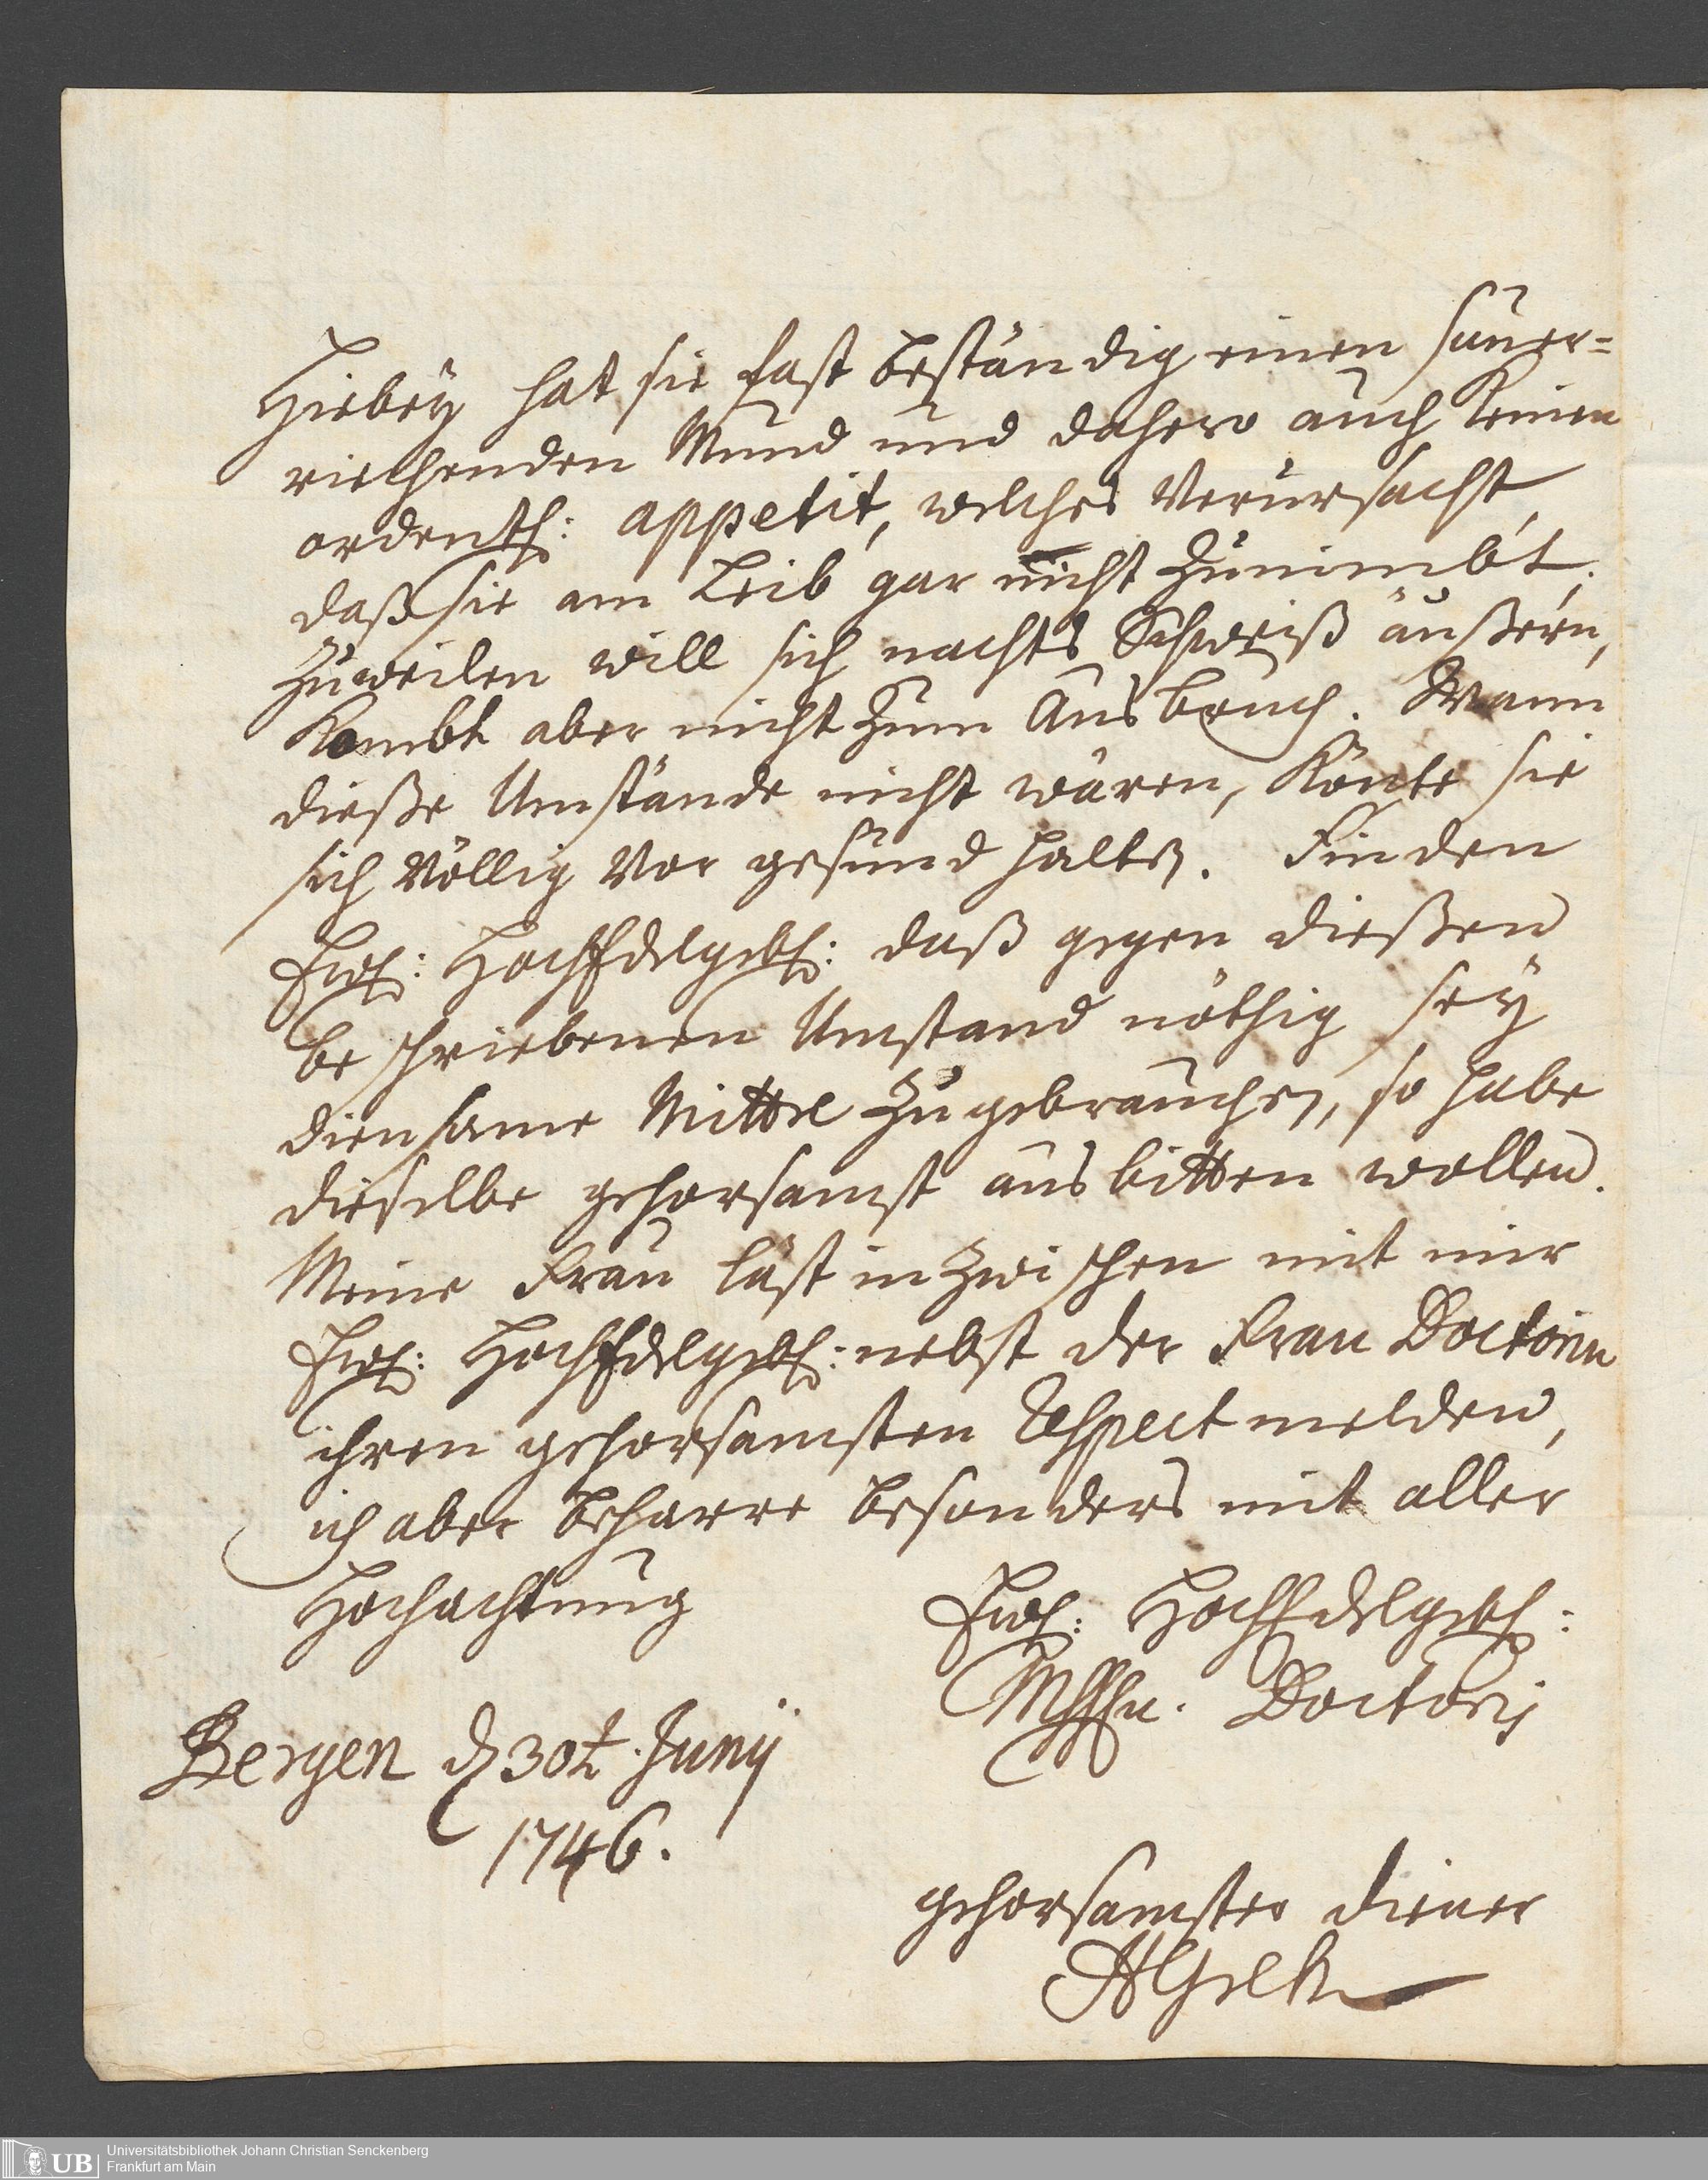 Hiebey hat sie fast beständig einen sauer=
riechenden Mund und dahero auch keinen
ordentl: appetit, welches verursacht,
daß sie am Leib gar nicht zunimbt.
Zuweilen will sich nachts Schweiß äußern,
kombt aber nicht zum Ausbruch. Wann
dieße Umstände nicht wären, könte sie
sich völlig vor gesund halten. Finden
Ewl: HochEdelgebl: daß gegen dießen
beschriebenen Umstand nöthig sey
diensame Mittel zu gebrauchen, so habe
dieselbe gehorsamst ausbitten wollen.
Meine Frau läst inzwischen mit mir
Ewl: HochEdelgebl: nebst der Frau Doctorin
ihren gehorsamsten Respect melden,
ich aber beharre besonders mit aller
Hochachtung
Ewl: HochEdelgebl:
Doctoris
Bergen d 30t. Junij
1746.
gehorsamster Diener
Universitätsbibliothek Johann Christian Senckenberg
Frankfurt am Main
UB